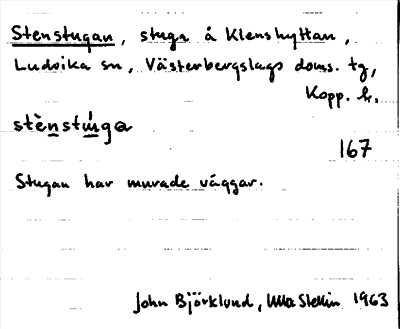 Stenstugan, stuga å Klenshyttan,
Ludvika sn, Västerbergslags doms. tg,
Kopp. l.
stènstúga
167
Stugan har murade väggar.
John Björklund, Ulla Stellin 1963